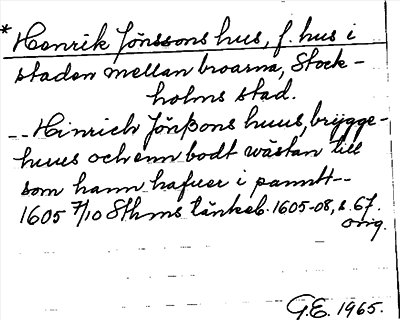 * Henrik Jönssons hus, f. hus i
staden mellan broarna, Stock-
holms stad.
-- Hinrich Jönßons huus, brygge-
huus och enn bodt wästan till
som hann hafuer i panntt--
1605 7/10 Sthms tänkeb. 1605-08, s. 67.
orig.
G.E. 1965.